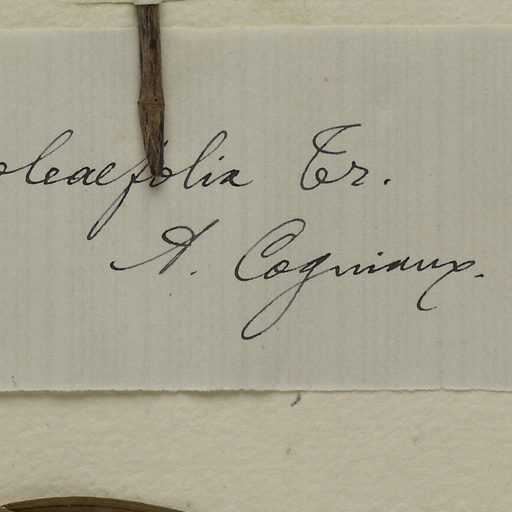 oleaefolia Tr.
A. Cogniaux.